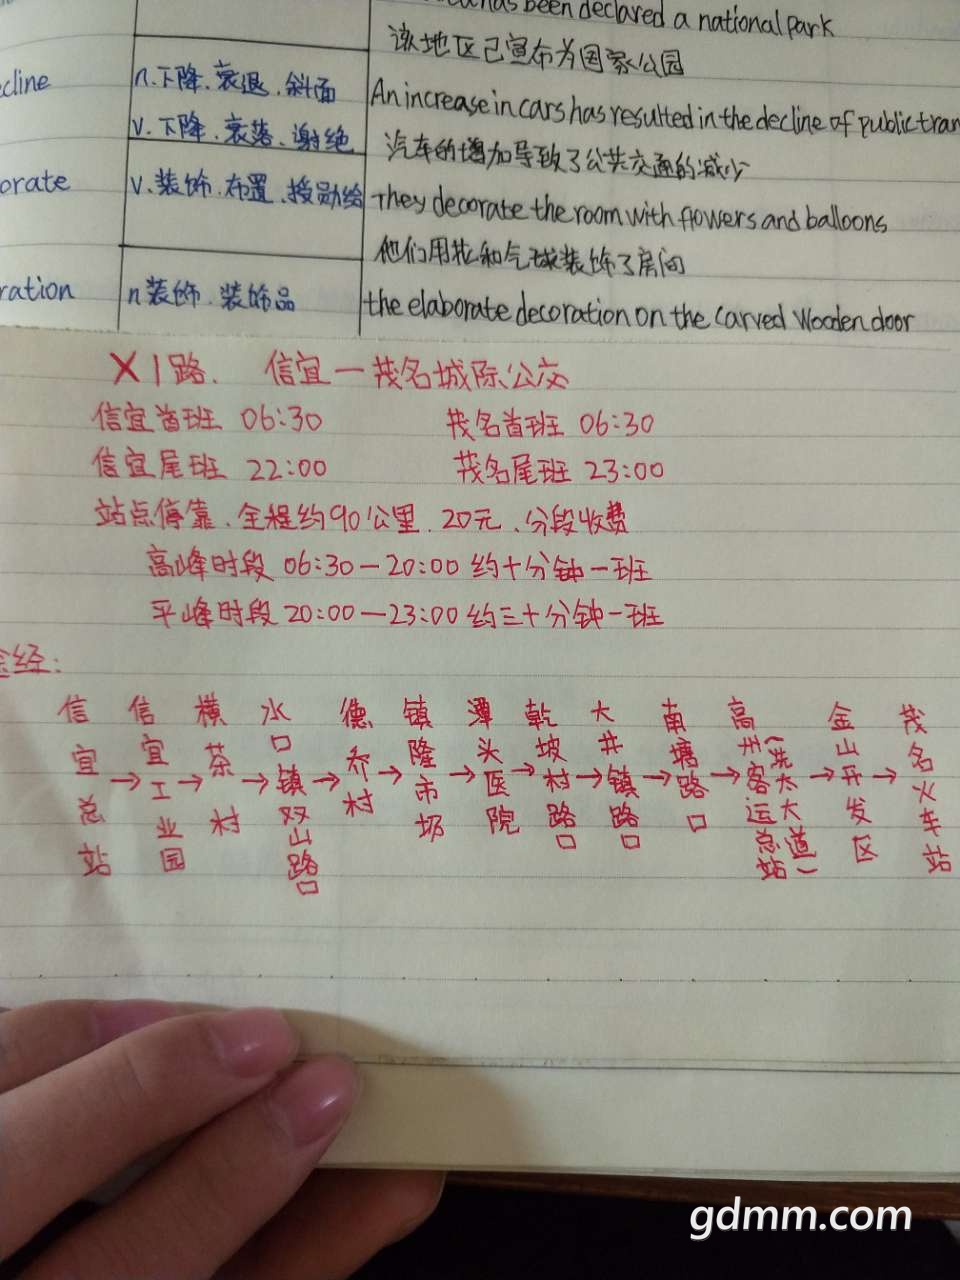 has been declared a national park
该地区已宣布为国家公园
cline
n.下降、衰退、斜面
v.下降、衰落、谢绝
An increase in cars has resulted in the decline of public tran
汽车的增加导致了公共交通的减少
orate
v.装饰、布置、授勋给
They decorate the room with flowers and balloons
他们用花和气球装饰了房间
ration
n装饰、装饰品
the elaborate decoration on the carved wooden door
X1路、 信宜一茂名城际公交
信宜首班 06:30 茂名首班 06:30
信宜尾班 22:00 茂名尾班 23:00
站点停靠、全程约90公里、20元、分段收费
高峰时段 06:30—20:00 约十分钟一班
平峰时段 20:00—23:00 约三十分钟一班
途经:
信宜总站→信宜工业园→横茶村→水口镇双山路口→德乔村→镇隆市场→潭头医院→乾坡村路口→大井镇路口→南塘路口→高州客运总站(冼太大道)→金山开发区→茂名火车站
gdmm.com